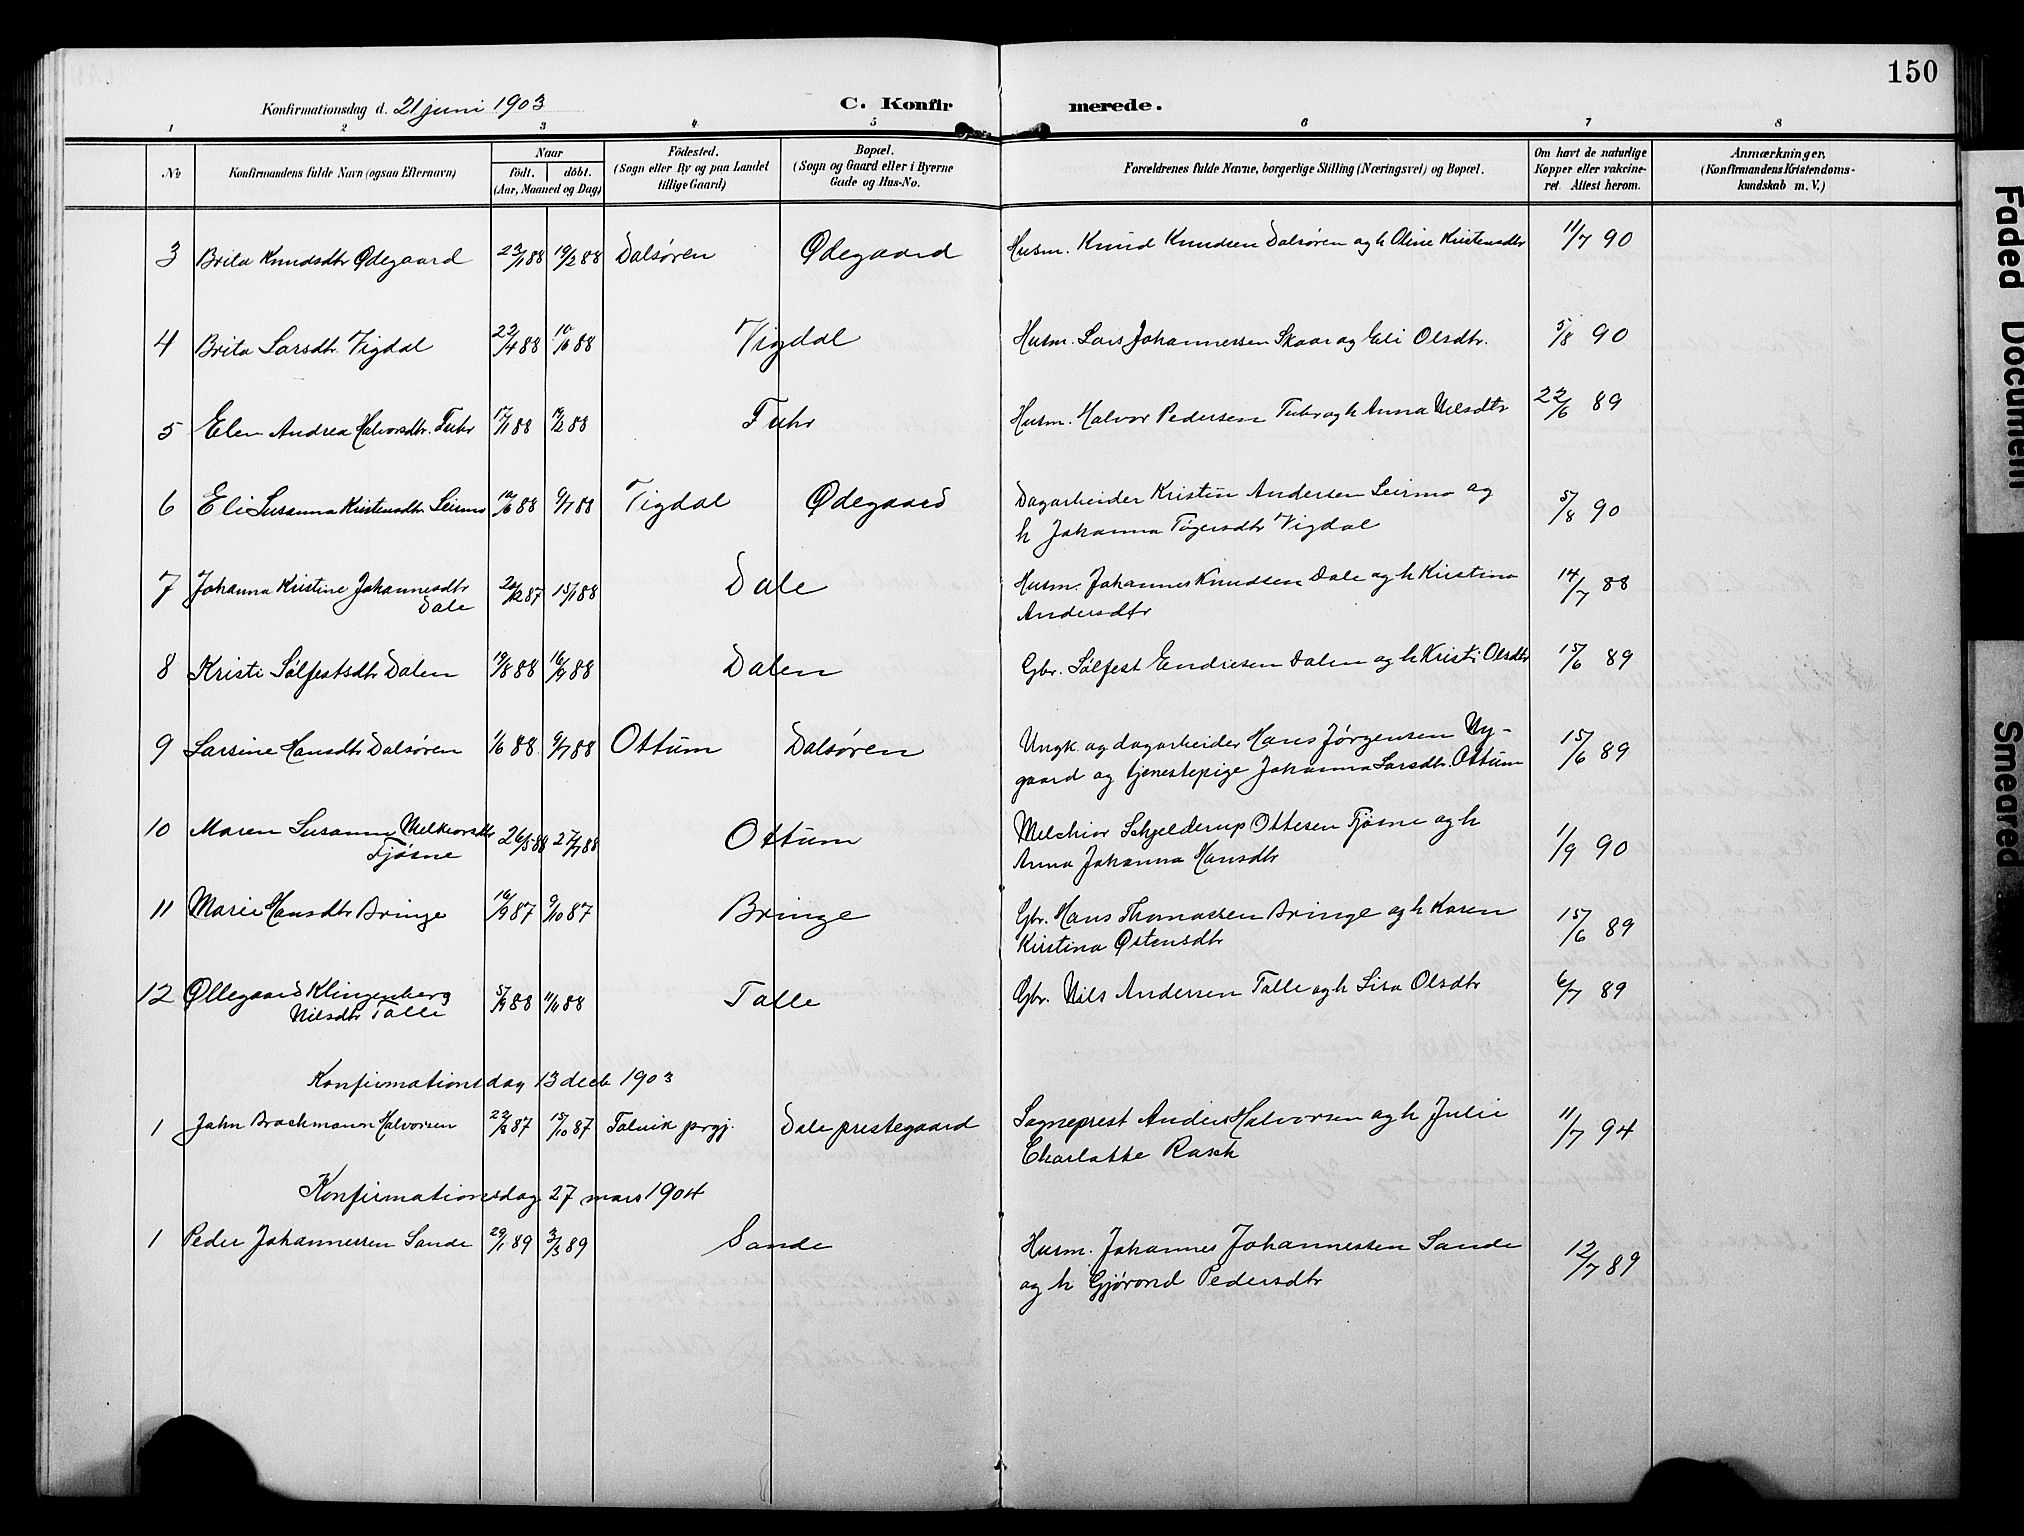 150
Konfirmationsdag d. 21 juni 1903 C. Konfirmerede.
1 2 3 4 5 6 7 8
No Konfirmandens fulde Navn (ogsaa Efternavn) Naar födt. döbt. (Aar, Maaned og Dag) Födested. (Sogn eller By og paa Landet tillige Gaard) Bopæl. (Sogn og Gaard eller i Byerne Gade og Hus-No. Forældrenes fulde Navne, borgerlige Stilling (Næringsvei) og Bopæl. Om havt de naturlige Kopper eller vakcineret. Attest herom. Anmærkninger, (Konfirmandens Kristendomskundskab m. V.)
3 Brita Knudsdtr Ødegaard 23/1 88 19/2 88 Dalsøren Ødegaard Husm. Knud Knudsen Dalsøren og h Oline Kristensdtr 11/7 90
4 Brita Larsdtr. Vigdal 22/4 88 10/6 88 Vigdal Husm. Lars Johannessen Skaar og Eli Olsdtr. 5/8 90
5 Elen Andrea Halvorsdtr. Fuhr 17/1 88 /2 88 Fuhr Husm. Halvor Pedersen Fuhr og h Anna Nilsdtr 22/6 89
6 Eli Susanna Kristensdtr Leirmo 10/6 88 9/7 88 Vigdal Ødegaard Dagarbeider Kristen Andersen Leirmo og
h Johanna Tøgersdtr Vigdal 5/8 90
7 Johanna Kristine Johannesdtr
Dale 24/12 87 15/1 88 Dale Husm. Johannes Knudsen Dale og h Kristina
Andersdtr 14/7 88
8 Kristi Sølfestsdtr Dalen 19/8 88 16/9 88 Dalen Gbr. Sølfest Endresen Dalen og h Kristi Olsdtr 15/6 89
9 Larsine Hansdtr Dalsøren 1/6 88 9/7 88 Ottum Dalsøren Ungk. og dagarbeider Hans Jørgensen Ny-
gaard og tjenestepige Johanna Larsdtr. Ottum 15/6 89
10 Maren Susanne Melkiorsdtr
Fjøsne 26/5 88 27/7 88 Ottum Melchior Schjelderup Ottesen Fjøsne og h
Anna Johanna Hansdtr 1/9 90
11 Marie Hansdtr Bringe 16/9 87 9/10 87 Bringe Gbr. Hans Thomassen Bringe og h Karen
Kristina Østensdtr 15/6 89
12 Øllegaard Klingenberg
Nilsdtr Talle 5/9 88 11/11 88 Talle Gbr. Nils Andersen Talle og h Lisa Olsdtr 6/7 89
Konfirmationsdag 13 decb 1903
1 John Brochmann Halvorsen 22/8 87 15/10 87 Talvik prgj. Dale prestegaard Sogneprest Anders Halvorsen og h Julie
Charlotte Rasch 11/7 94
Konfirmationsdag 27 mars 1904
1 Peder Johannessen Sande 29/1 89 3/3 89 Sande Husm. Johannes Johannessen Sande
og h Gjørond Pedersdtr 12/7 89
Faded Document
Smeared